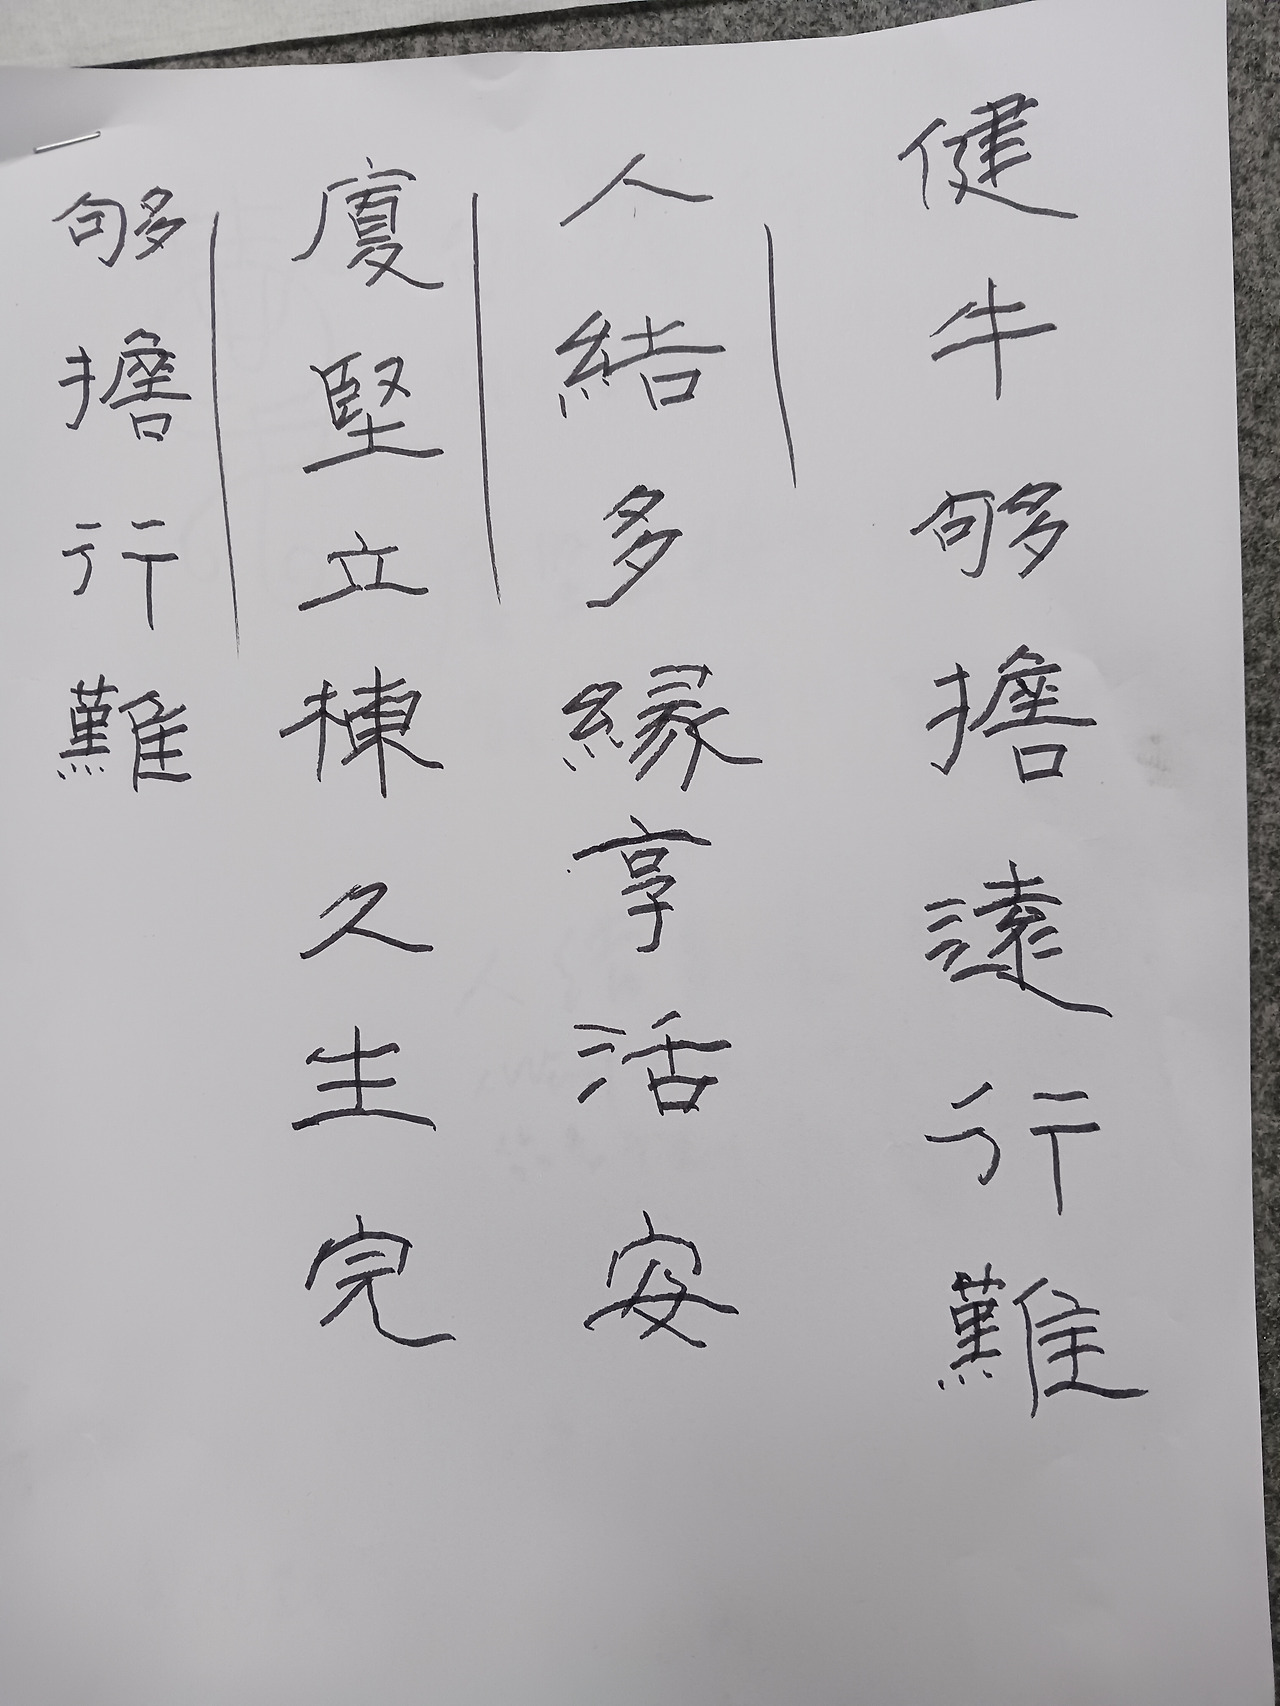 健牛够擔遠行難
人結多緣享活安
廈堅立棟久生完
够擔行難